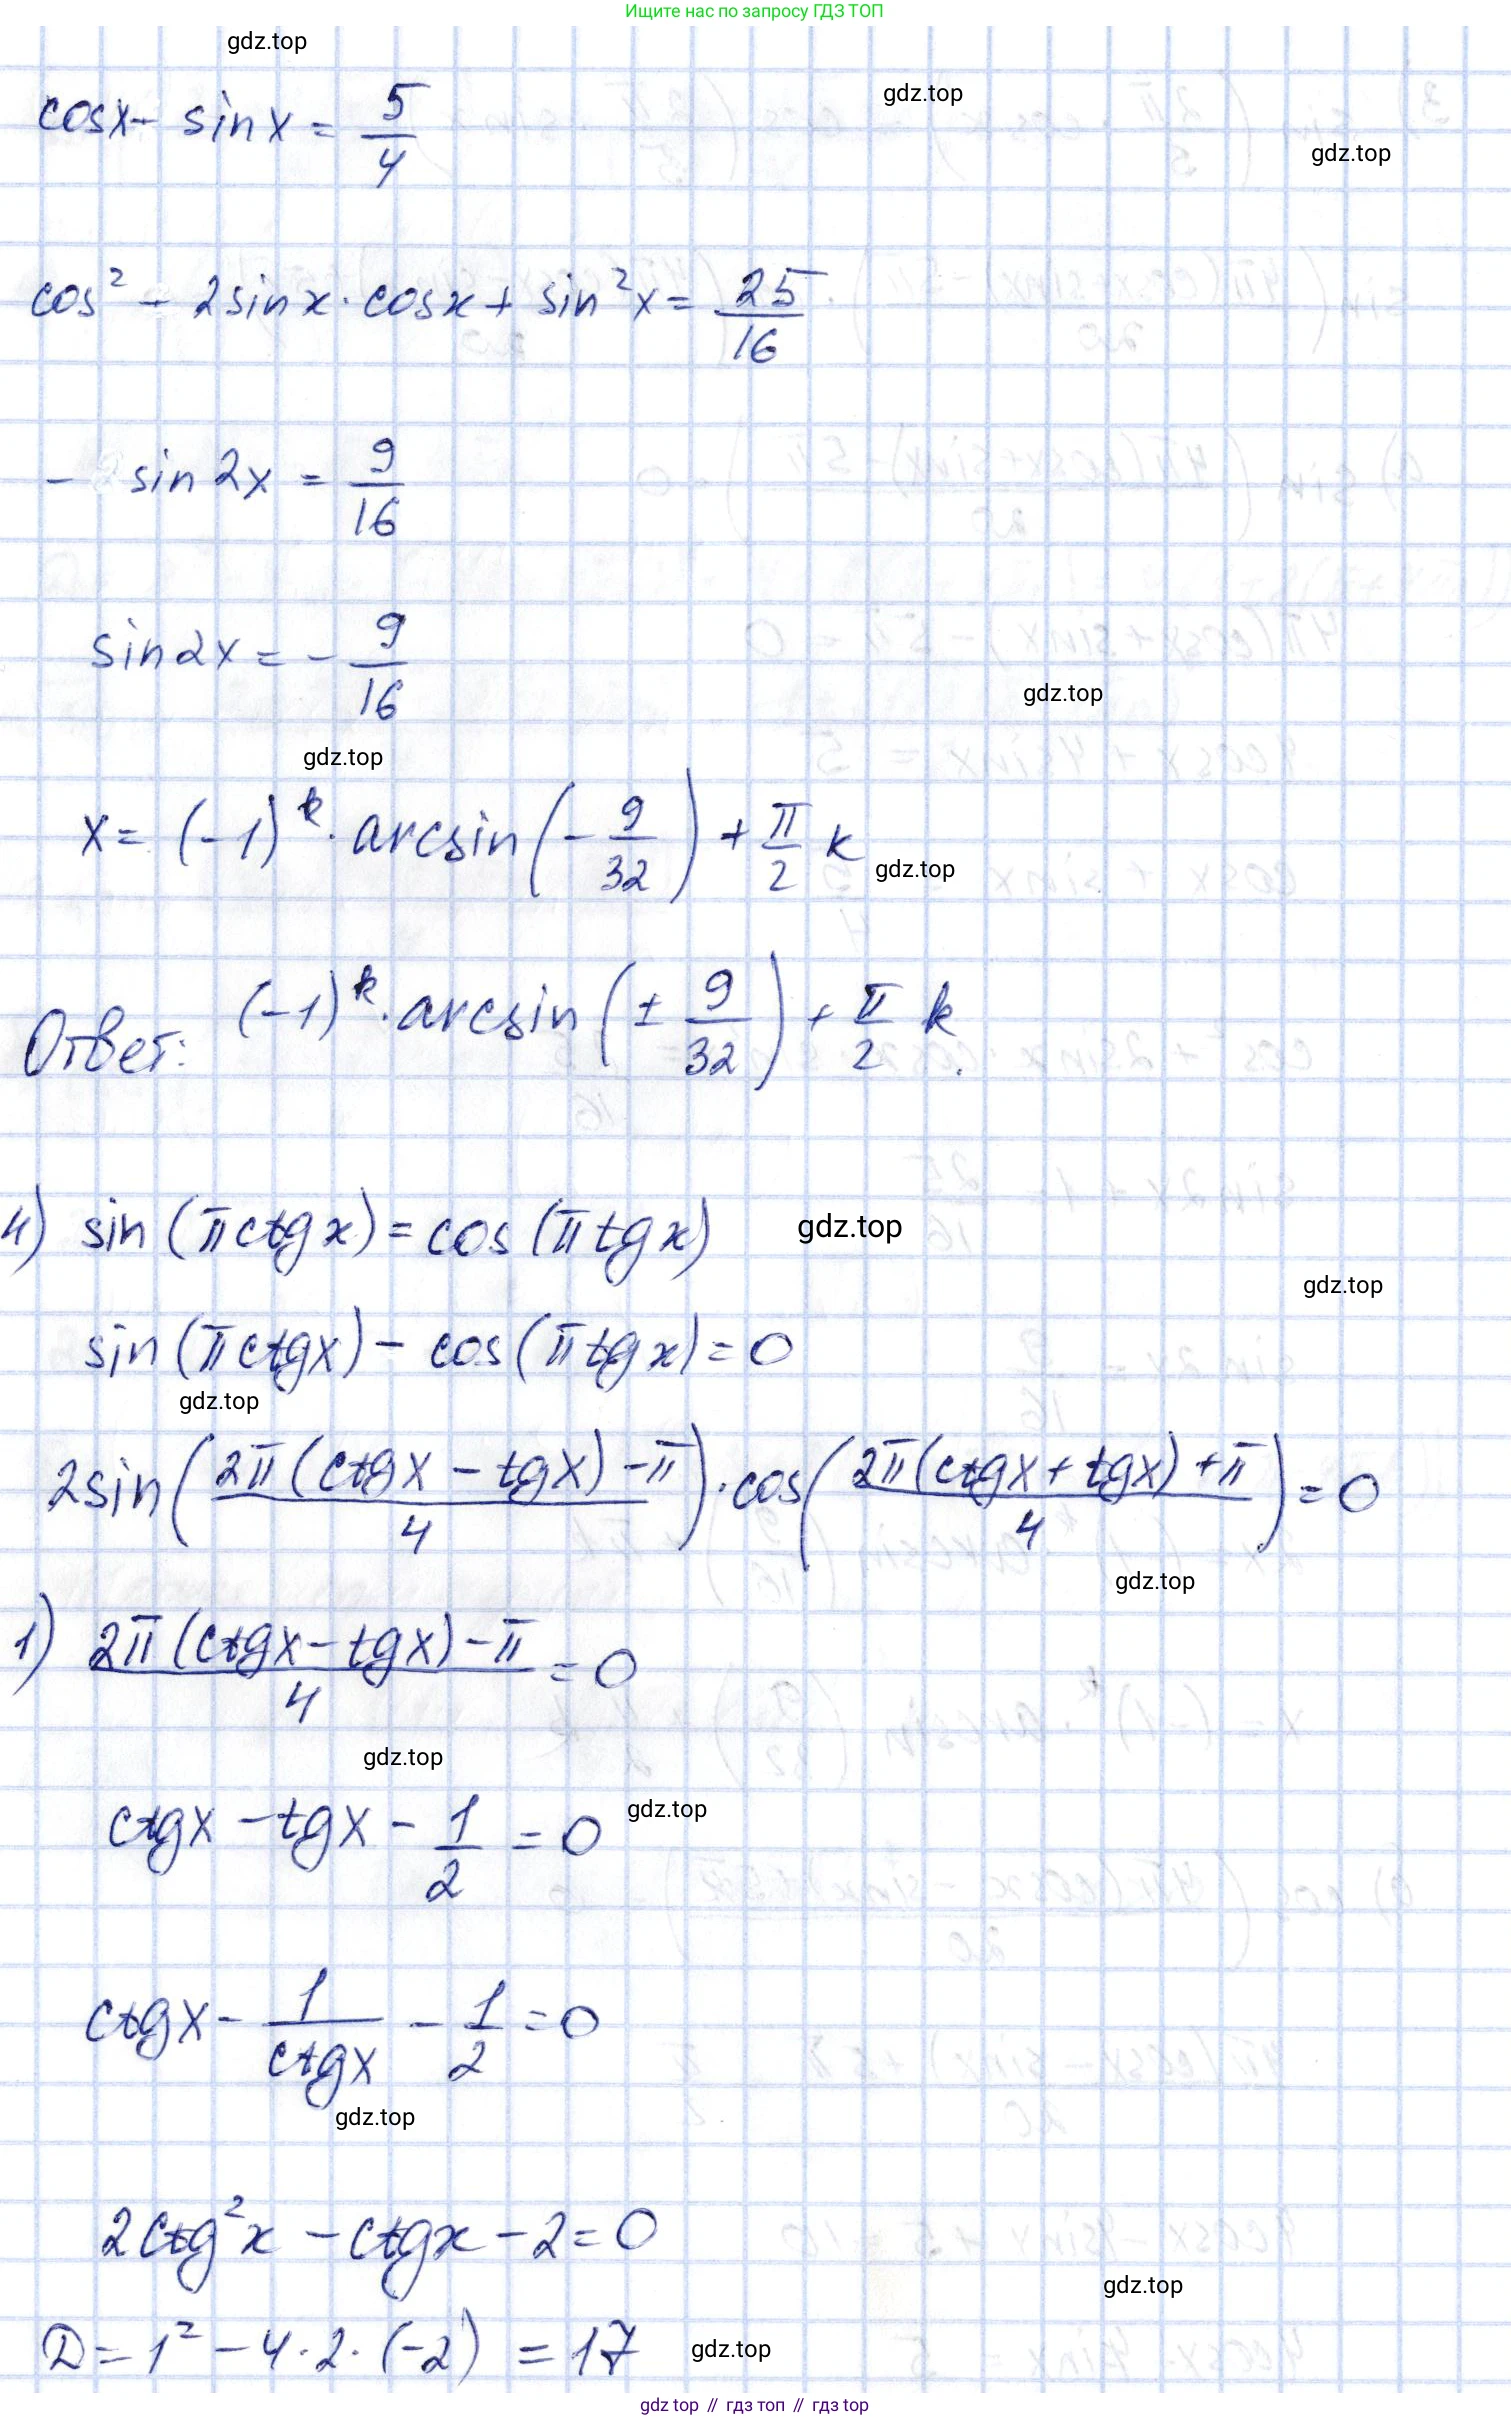 Ищите нас по запросу ГДЗ ТОП
gdz.top
cosx - sinx = 5/4
gdz.top
gdz.top
cos² - 2sinx · cosx + sin²x = 25/16
- sin2x = 9/16
sin2x = - 9/16
gdz.top
gdz.top
x = (-1)^k · arcsin(- 9/32) + π/2 k
gdz.top
Ответ: (-1)^k · arcsin(± 9/32) + π/2 k.
4) sin(π ctgx) = cos(π tgx)
gdz.top
gdz.top
sin(π ctgx) - cos(π tgx) = 0
gdz.top
2sin((2π(ctgx - tgx) - π)/4) · cos((2π(ctgx + tgx) + π)/4) = 0
gdz.top
1) (2π(ctgx - tgx) - π)/4 = 0
gdz.top
ctgx - tgx - 1/2 = 0
gdz.top
ctgx - 1/ctgx - 1/2 = 0
gdz.top
2ctg²x - ctgx - 2 = 0
gdz.top
D = 1² - 4 · 2 · (-2) = 17
gdz.top
gdz top // гдз топ // гдз top